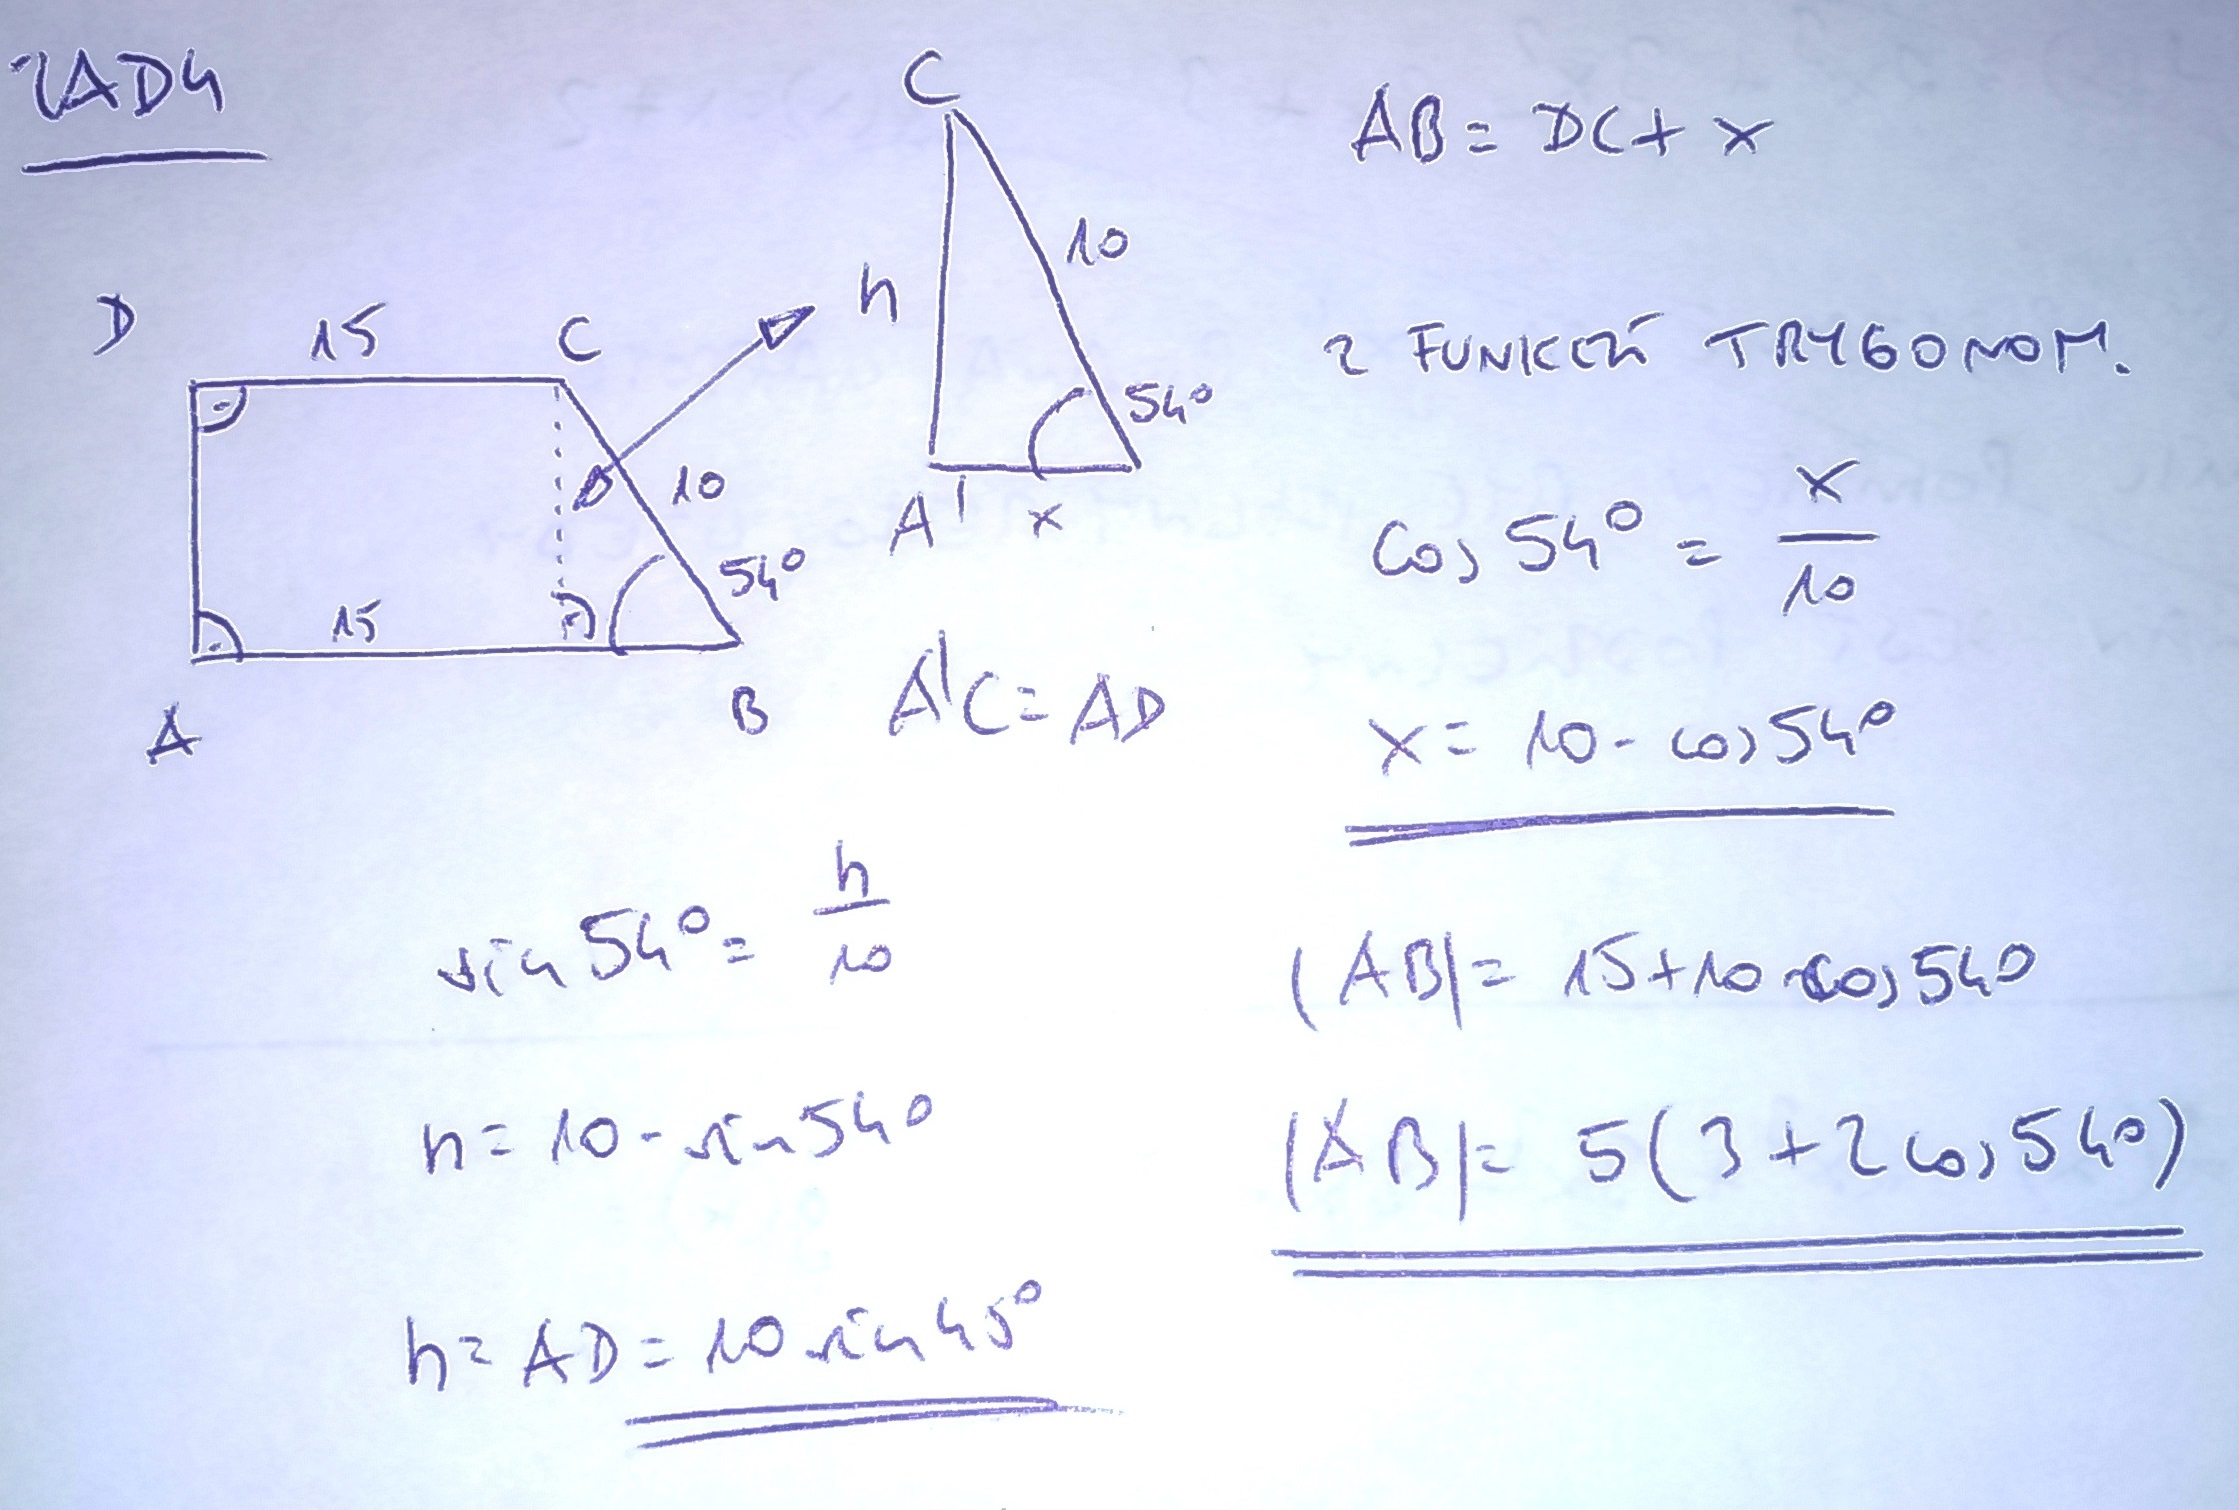 ZAD4
D 15 C
10
54°
15
A B
C
h 10
54°
A' x
A'C = AD
sin 54° = h/10
h = 10 · sin 54°
h = AD = 10 sin 45°
AB = DC + x
Z FUNKCJI TRYGONOM.
cos 54° = x/10
x = 10 · cos 54°
|AB| = 15 + 10 cos 54°
|AB| = 5(3 + 2 cos 54°)